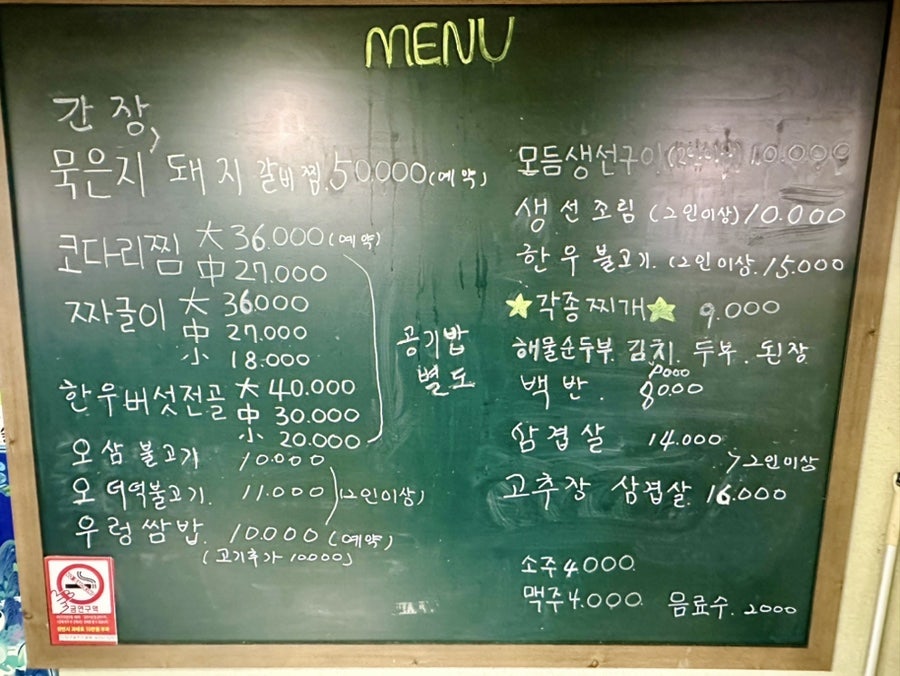 MENU
간장,
묵은지 돼지 갈비찜. 50.000 (예약)
코다리찜 大 36.000 (예약)
中 27.000
짜글이 大 36.000
中 27.000
小 18.000
한우버섯전골 大 40.000
中 30.000
小 20.000
공기밥
별도
오삼불고기 10.000
오더덕불고기. 11.000 (2인이상)
우렁쌈밥. 10.000 (예약)
(고기추가 10000)
모듬생선구이 10.000
생선조림 (2인이상) 10.000
한우불고기. (2인이상. 15.000
각종찌개 9.000
해물순두부. 김치. 두부. 된장
백반. 8000
삼겹살 14.000
고추장 삼겹살. 16.000
> 2인이상
소주 4.000
맥주 4.000. 음료수. 2000
금연구역